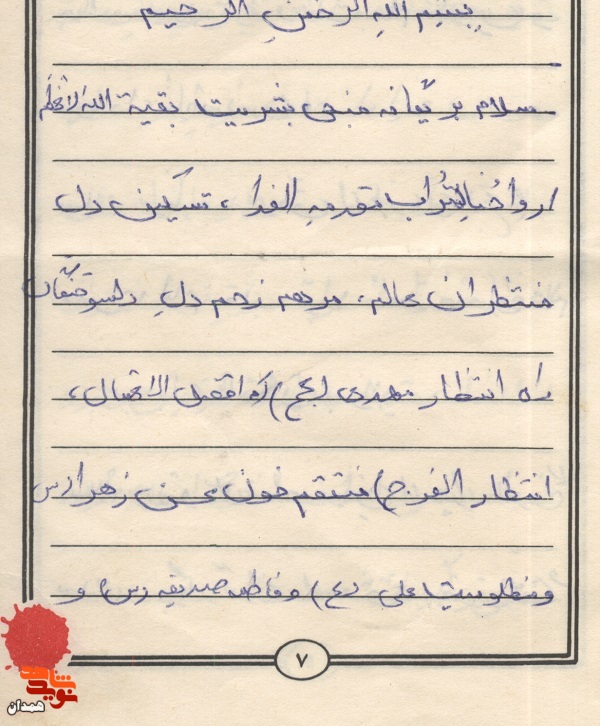 بسم الله الرحمن الرحیم
سلام بر یگانه منجی بشریت بقیة الله الاعظم
ارواحُنا لِتُراب مقدمه الفدا، تسکین دل
منتظران عالم، مرهم زخم دلِ دلسوختگان
راه انتظار مهدی (عج) (که افضل الاعمال،
انتظار الفرج) منتقم خون محسن زهرا (س)
و مظلومیت علی (ع) و فاطمه صدیقه (س) و
۷
نوید شاهد
همدان